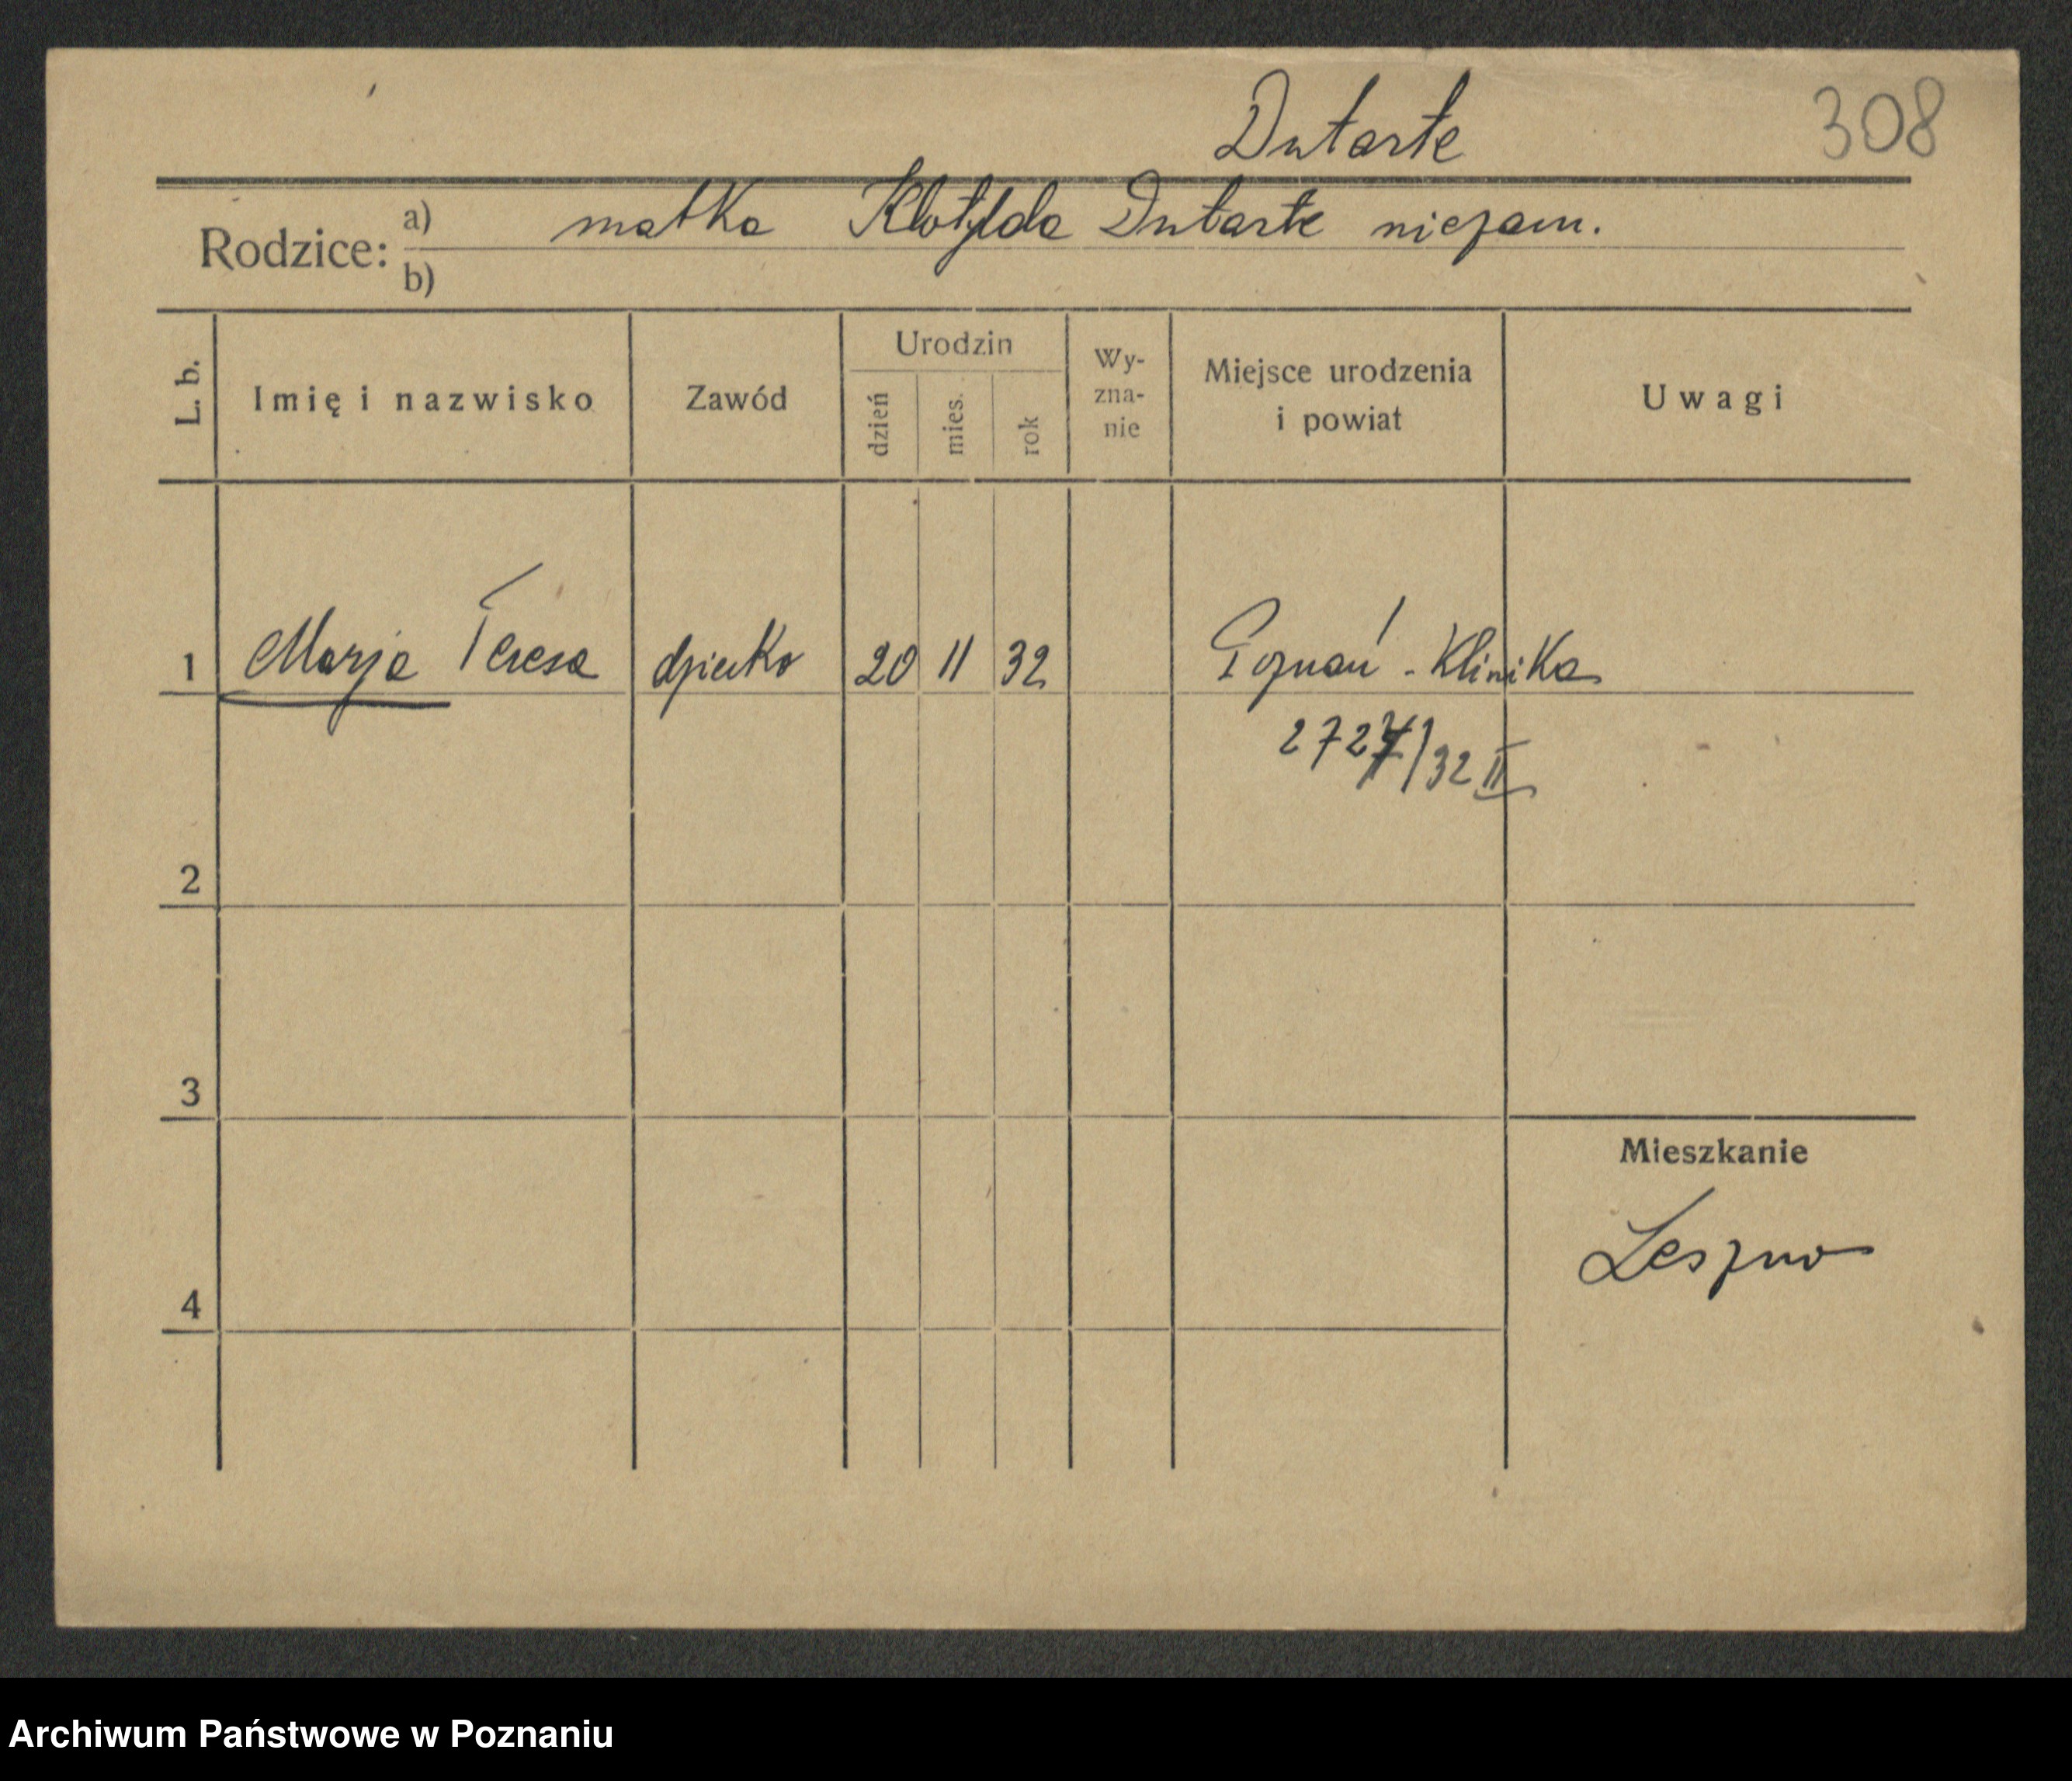 Dutarte 308
Rodzice: a) matka Klotylda Dutarte niezam.
b)
L. b. Imię i nazwisko Zawód Urodzin dzień mies. rok Wy-zna-nie Miejsce urodzenia i powiat Uwagi
1 Marja Teresa dziecko 20 11 32 Poznań - Klinika
2727/32 II
2
3
Mieszkanie
Leszno
4
Archiwum Państwowe w Poznaniu